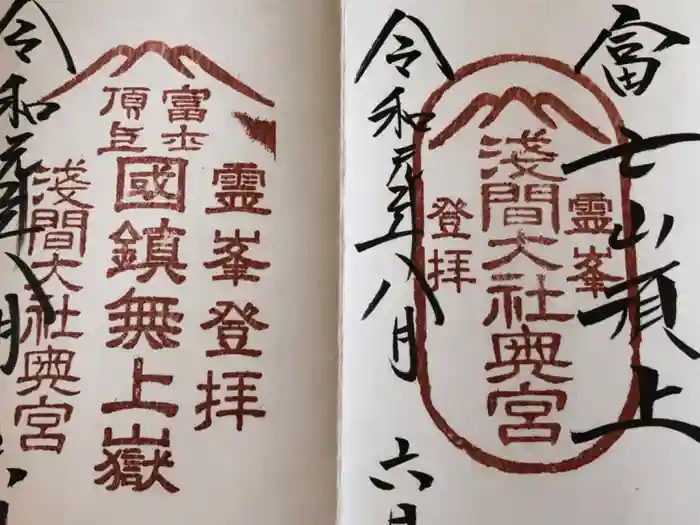 富士山頂上
霊峯
浅間大社奥宮
登拝
令和元年八月六日
霊峯登拝
富士
頂上
國鎮無上嶽
浅間大社奥宮
令和元年八月六日